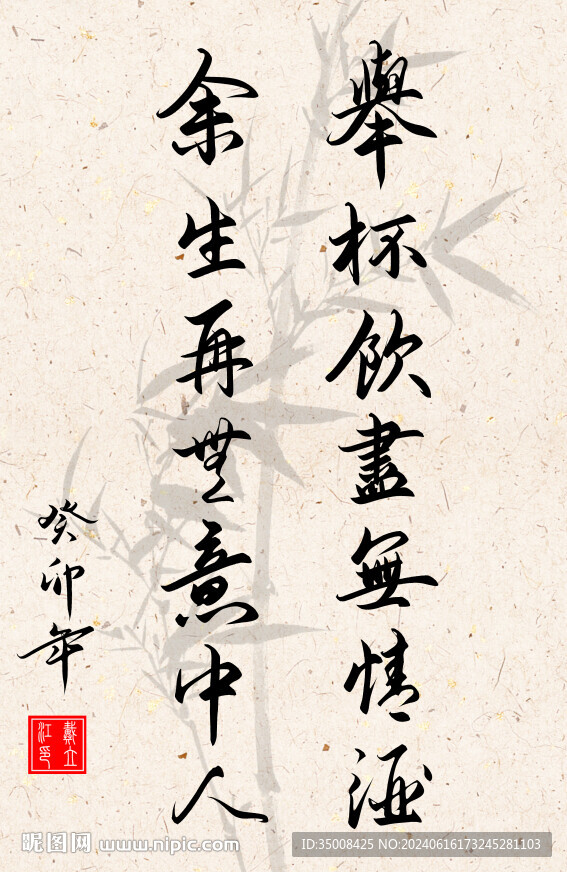 舉杯飲盡無情酒
余生再無意中人
癸卯年
戴立江印
昵图网 www.nipic.com
ID:35008425 NO:20240616173245281103